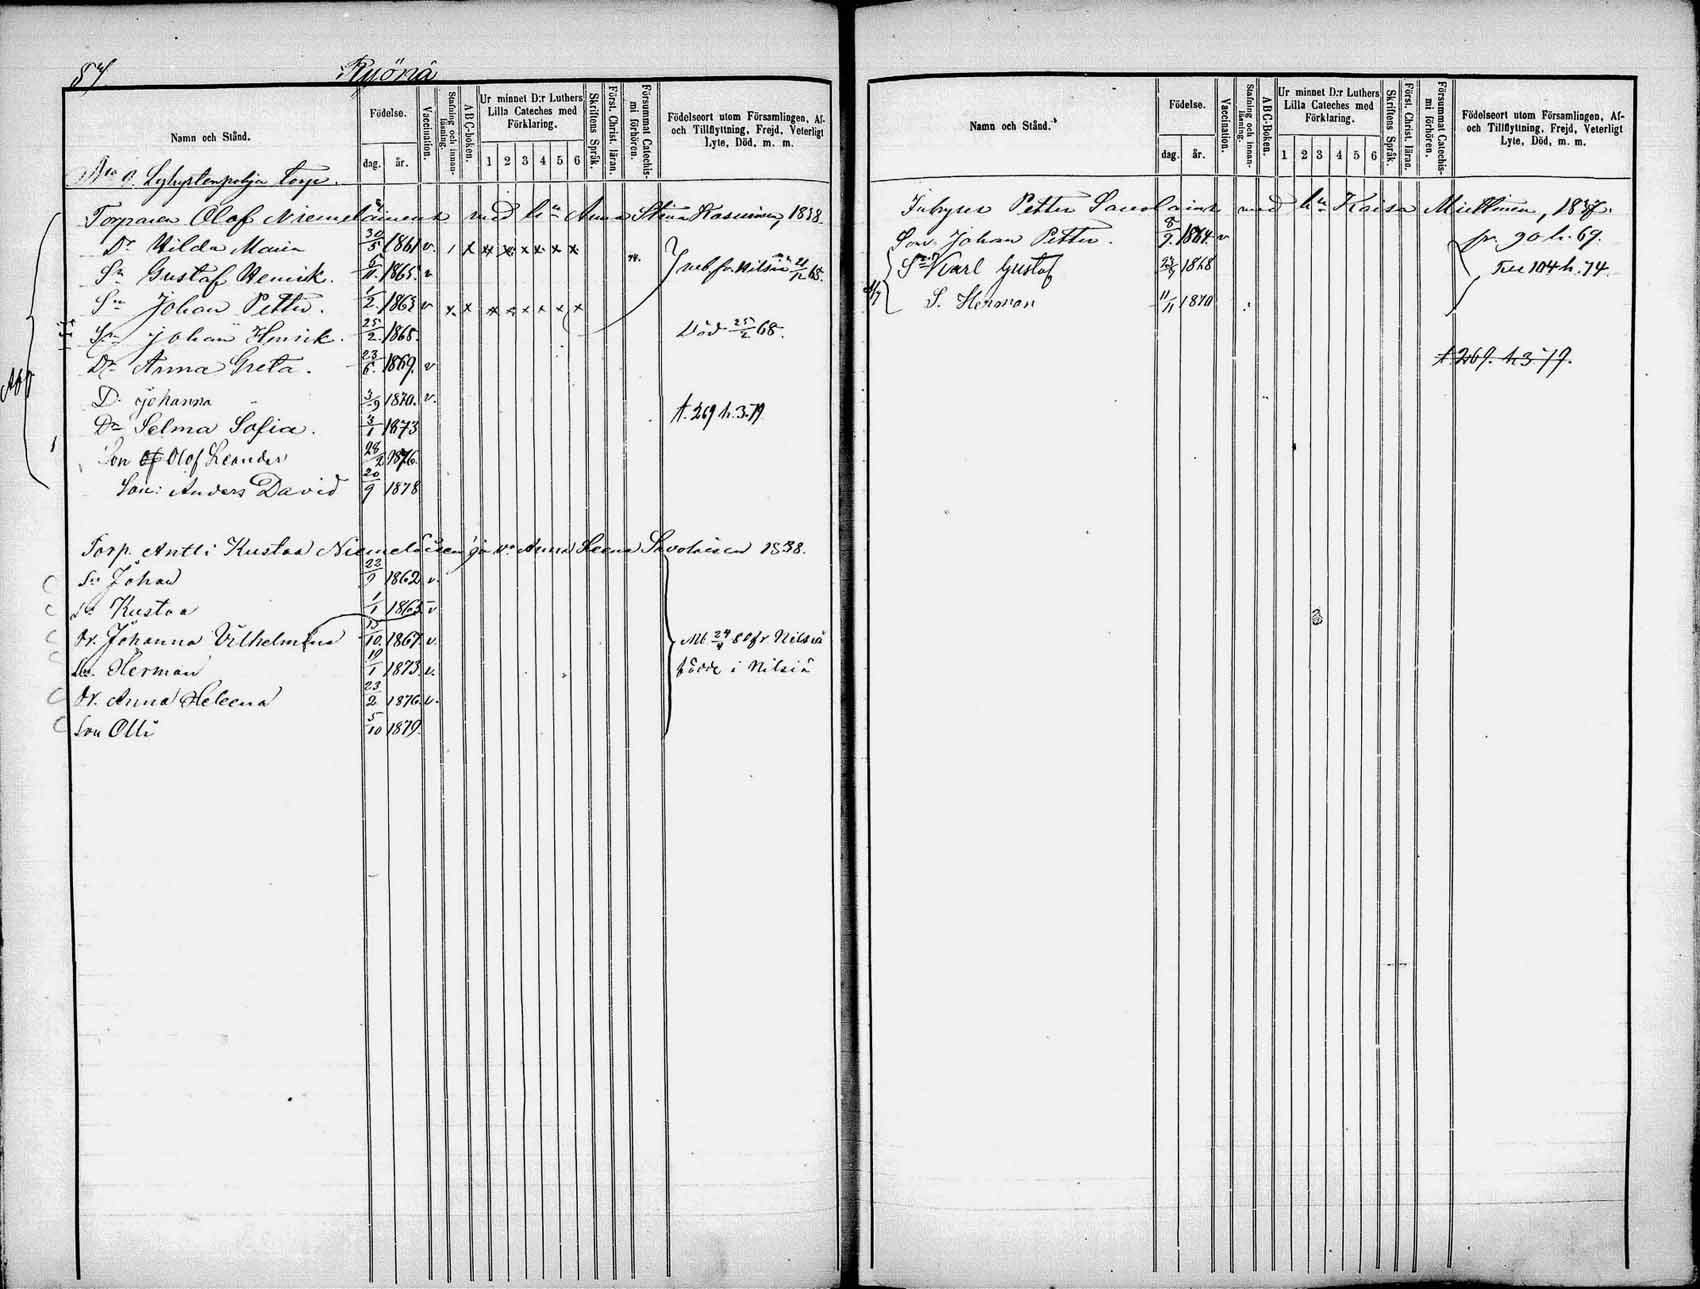 87.
Ryönä
Namn och Stånd.
Födelse.
dag.
år.
Vaccination.
Stafning och innanläsning.
ABC-boken.
Ur minnet D:r Luthers Lilla Cateches med Förklaring.
1 2 3 4 5 6
Skriftens Språk.
Först. Christ. läran.
Försummat Catechismi förhören.
Födelseort utom Församlingen, Af- och Tillflyttning, Frejd, Veterligt Lyte, Död, m. m.
No 0. Lyhystenpohja torp.
Torparen Olof Niemeläinens med hu Anna Stina Kasurinen, 1838.
Dr Hilda Maria 30/5 1861 v. 1 x x x x x x x
Sn Gustaf Henrik. 5/11 1865. v neb. fr. Nilsiä 65.
Sn Johan Petter. 1/2 1863 v x x x x x x x x
Sn Johan Henrik. 25/2 1868. Död 25/2 68.
Dr Anna Greta. 23/6 1869. v
D. Johanna 3/9 1870. v.
Dr Selma Sofia. 3/1 1873 t. 269 h. 3. 79
Son Olof Leander 28/2 1876
Son: Anders David 20/9 1878
Torp. Antti Kustaa Niemeläisen ja vo Anna Leena Savolaisen 1838.
Sn Johan 22/9 1862 v.
Sn Kustaa 1/1 1865 v
Dr. Johanna Vilhelmina 15/10 1867 v. Mb 24/4 80 fr Nilsiä
Sn Herman 19/1 1873 v. födde i Nilsiä
Dr. Anna Heleena 23/2 1876 v.
Son Olli 5/10 1879.
Namn och Stånd.
Födelse.
dag.
år.
Vaccination.
Stafning och innanläsning.
ABC-Boken.
Ur minnet D:r Luthers Lilla Cateches med Förklaring.
1 2 3 4 5 6
Skriftens Språk.
Först. Christ. läran.
Försummat Catechismi förhören.
Födelseort utom Församlingen, Af- och Tillflyttning, Frejd, Veterligt Lyte, Död, m. m.
Inhyses Petter Savolainens med hu Kaisa Miettinen, 1837.
Son Johan Petter. 8/9 1864. v fr. 90 h. 69.
Sn Karl Gustaf 1868 Till 104 h. 74.
S. Herman 11/11 1870
t 269. h 3 79.